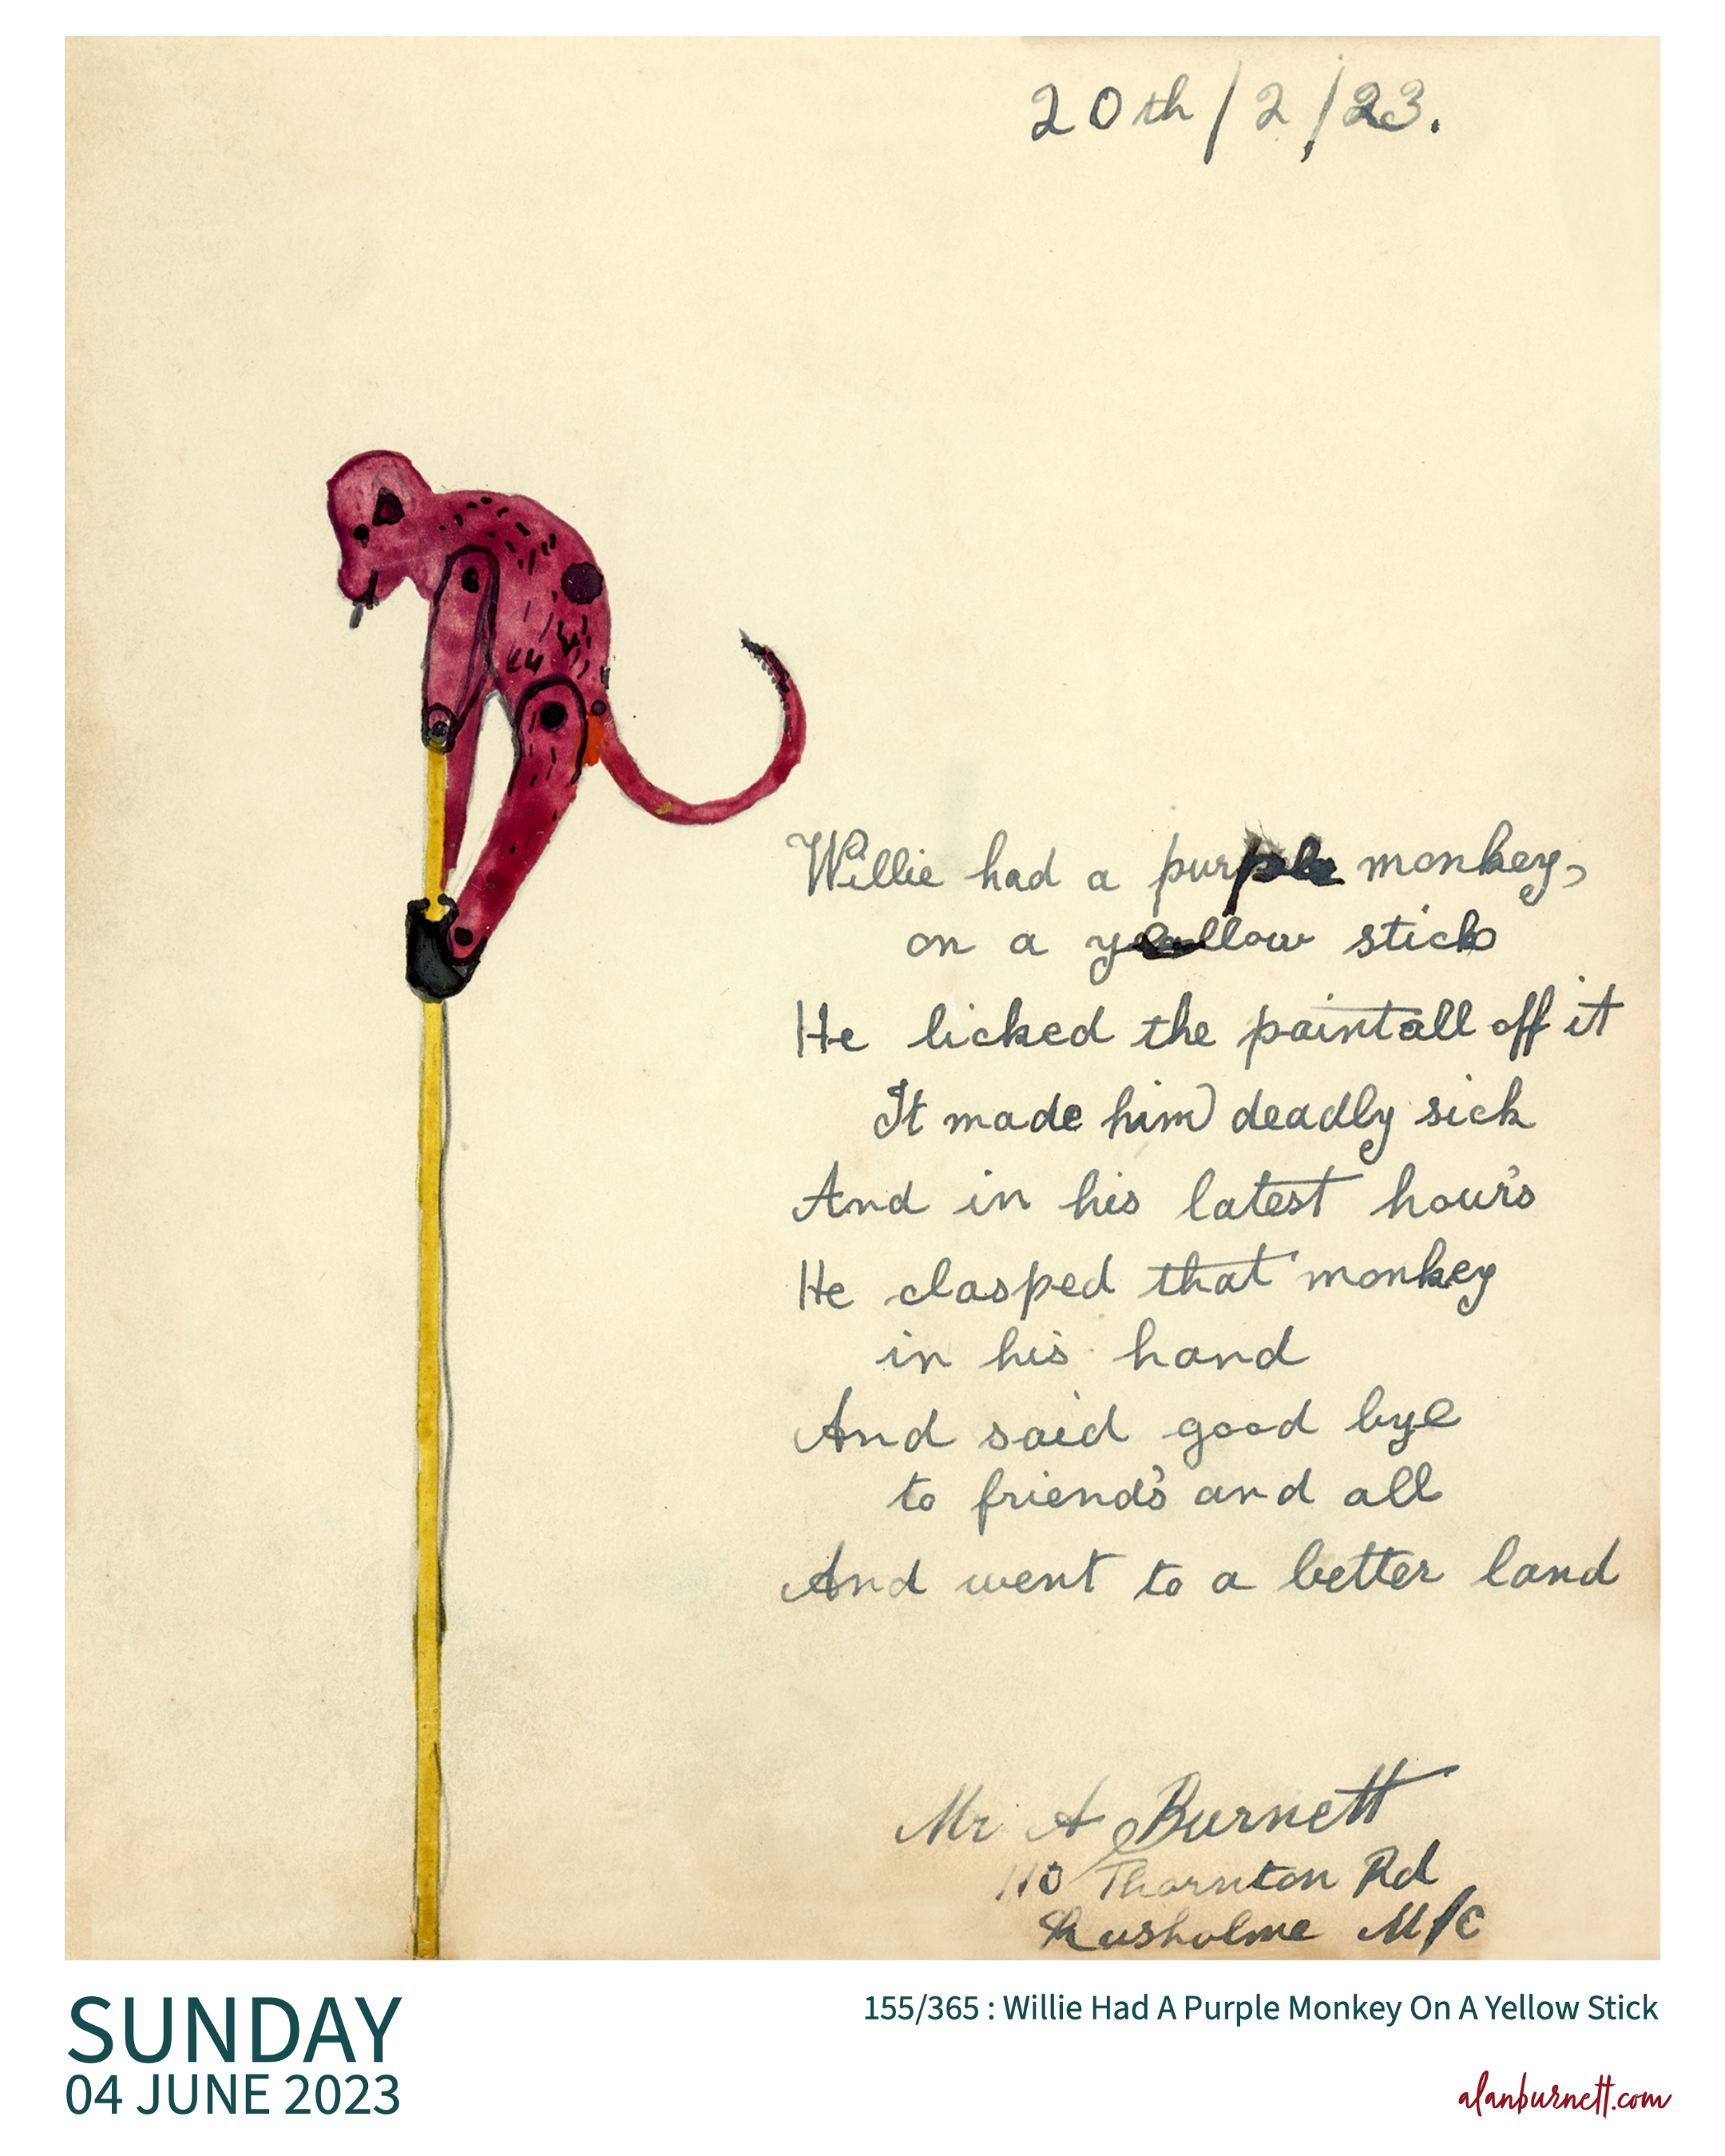 20th/2/23.
Willie had a purple monkey,
on a yellow stick
He licked the paint all off it
It made him deadly sick
And in his latest hour's
He clasped that monkey
in his hand
And said good bye
to friend's and all
And went to a better land
Mr A Burnett
110 Thornton Rd
Rusholme M/C
SUNDAY
04 JUNE 2023
155/365 : Willie Had A Purple Monkey On A Yellow Stick
alanburnett.com